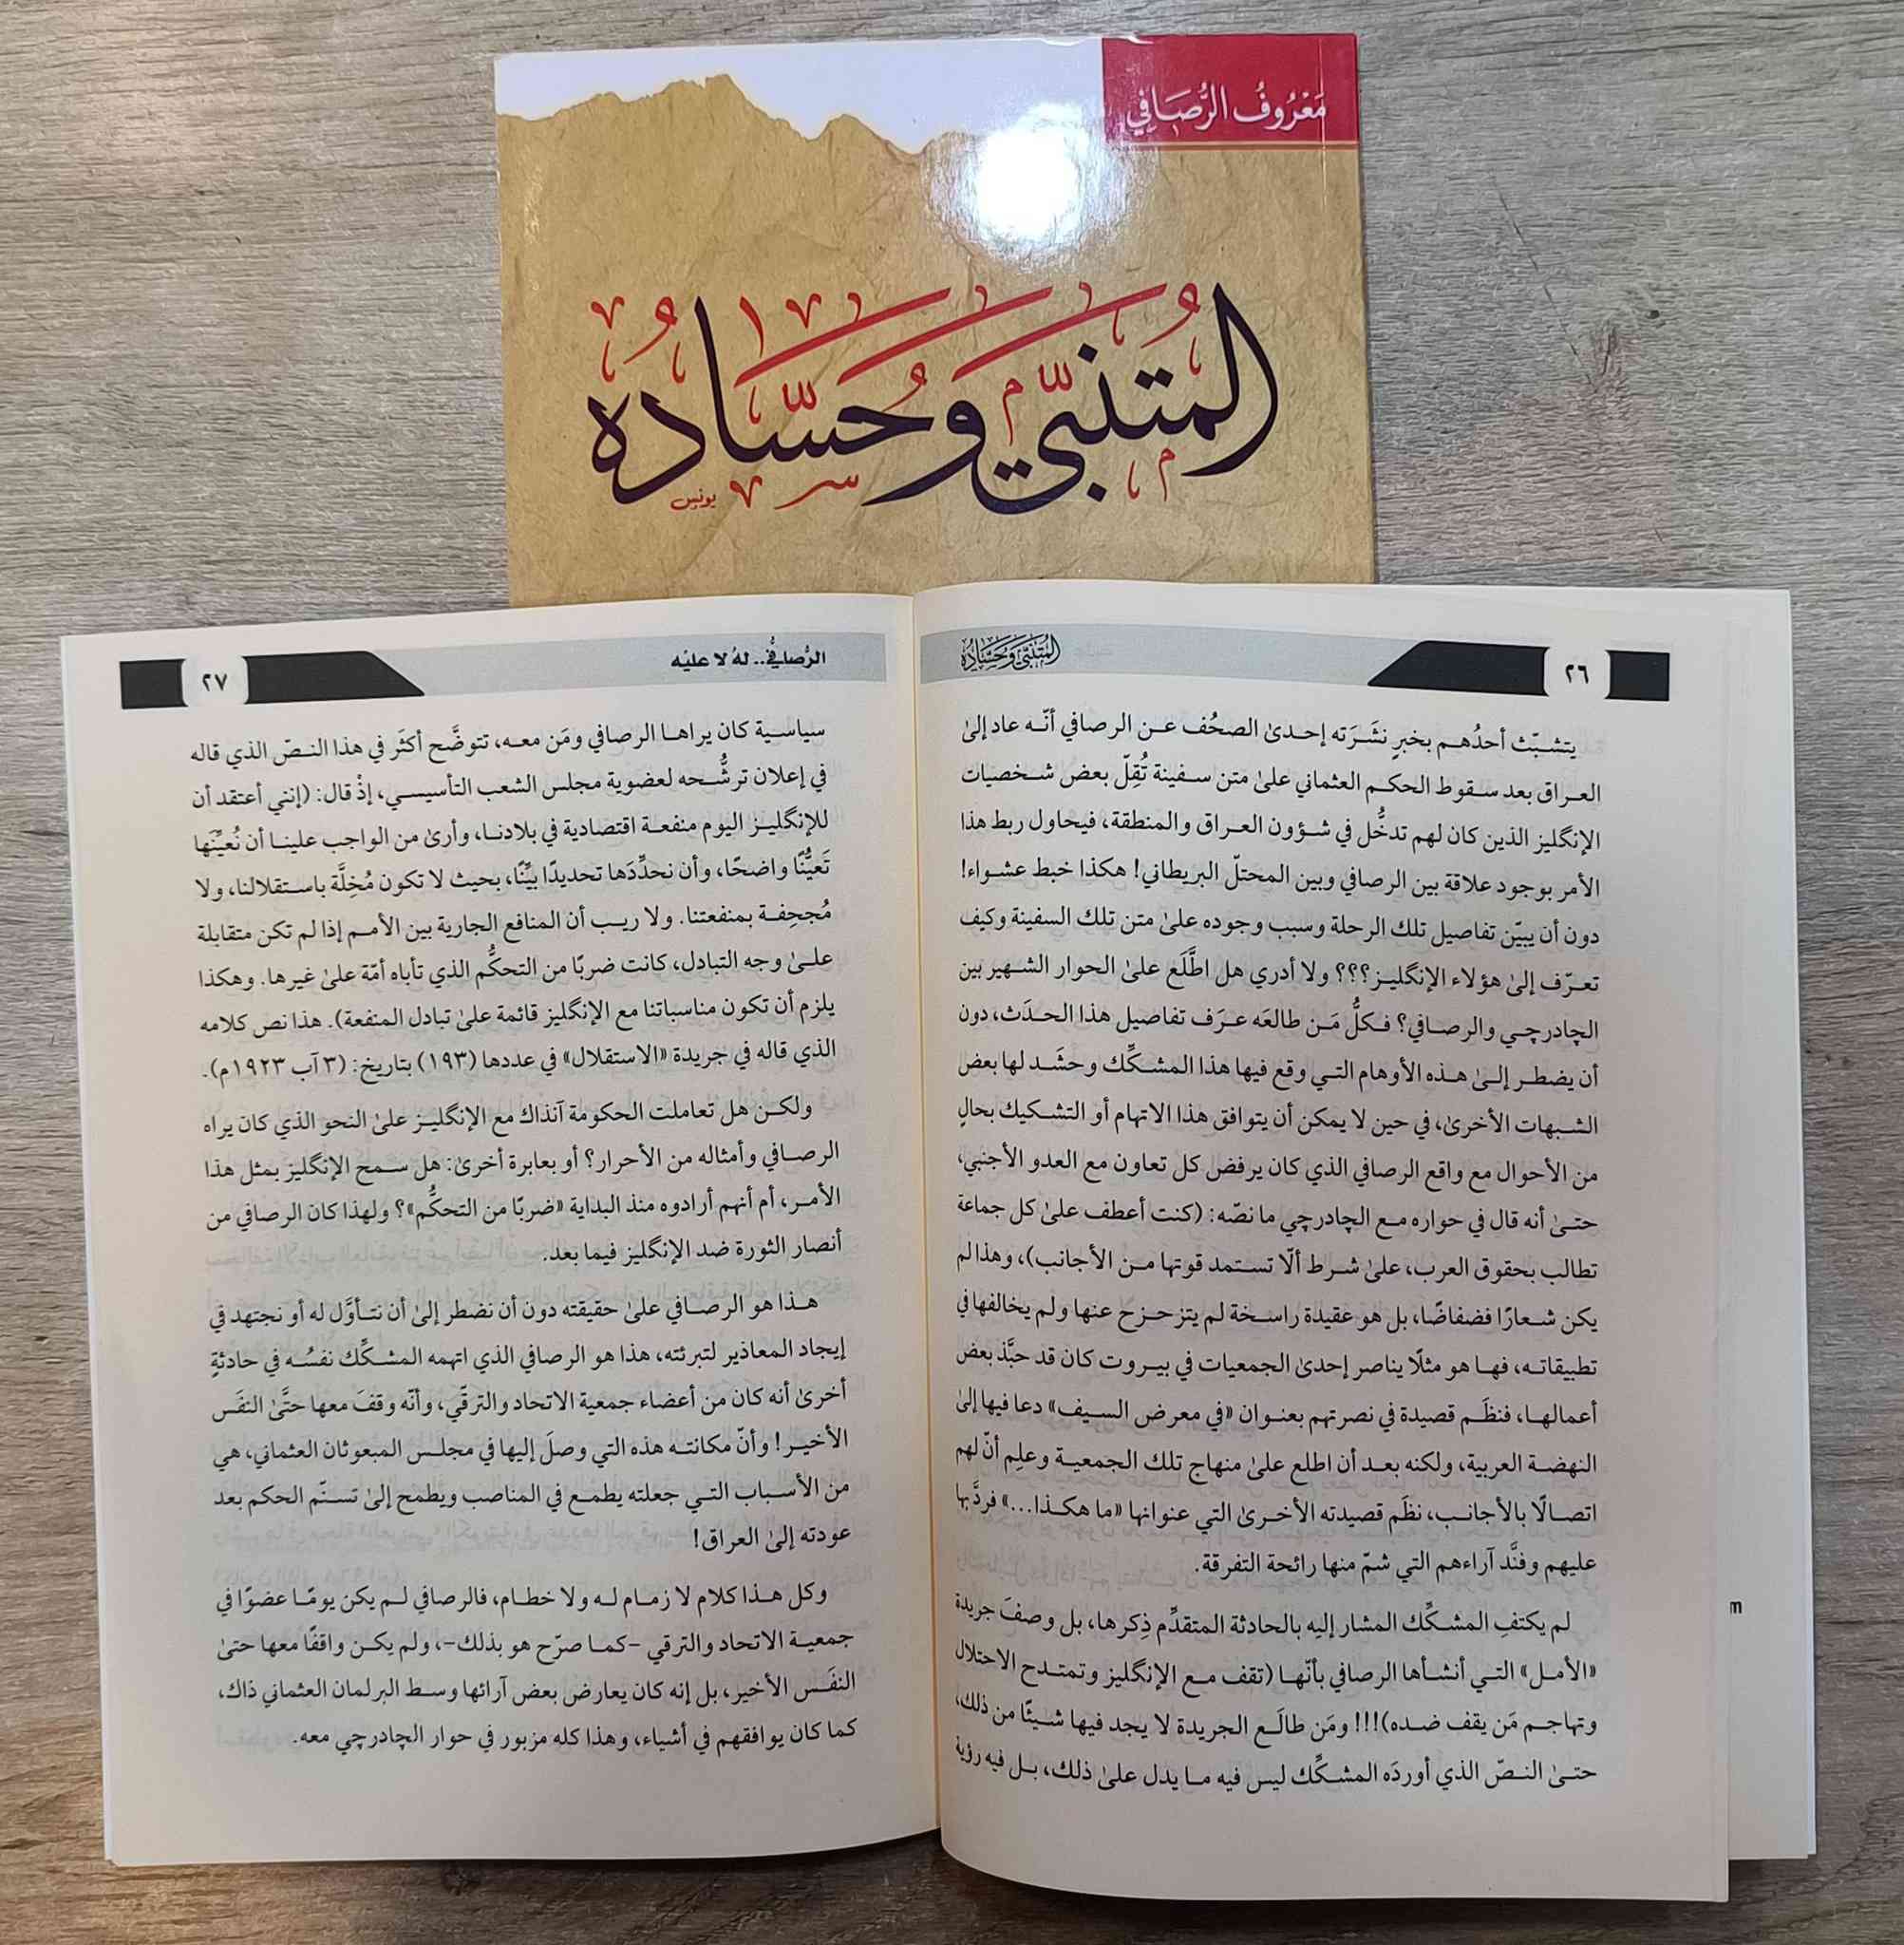 مَعْرُوفُ الرُّصَافِي
المُتَنَبِّي وَحُسَّادُهُ
يونس
٢٦
المُتَنَبِّي وَحُسَّادُهُ
يتشبّث أحدُهم بخبرٍ نشَرَته إحدىٰ الصحُف عن الرصافي أنّه عاد إلىٰ
العراق بعد سقوط الحكم العثماني علىٰ متن سفينة تُقِلّ بعض شخصيات
الإنگليز الذين كان لهم تدخُّل في شؤون العراق والمنطقة، فيحاول ربط هذا
الأمر بوجود علاقة بين الرصافي وبين المحتلّ البريطاني! هكذا خبط عشواء!
دون أن يبيّن تفاصيل تلك الرحلة وسبب وجوده علىٰ متن تلك السفينة وكيف
تعرّف إلىٰ هؤلاء الإنگليز؟؟؟ ولا أدري هل اطَّلَع علىٰ الحوار الشهير بين
الچادرچي والرصافي؟ فكلُّ مَن طالعَه عرَف تفاصيل هذا الحدَث، دون
أن يضطر إلىٰ هذه الأوهام التي وقع فيها هذا المشكِّك وحشَد لها بعض
الشبهات الأخرىٰ، في حين لا يمكن أن يتوافق هذا الاتهام أو التشكيك بحالٍ
من الأحوال مع واقع الرصافي الذي كان يرفض كل تعاون مع العدو الأجنبي،
حتىٰ أنه قال في حواره مع الچادرچي ما نصّه: (كنت أعطف علىٰ كل جماعة
تطالب بحقوق العرب، علىٰ شرط ألّا تستمد قوتها من الأجانب)، وهذا لم
يكن شعارًا فضفاضًا، بل هو عقيدة راسخة لم يتزحزح عنها ولم يخالفها في
تطبيقاته، فها هو مثلًا يناصر إحدىٰ الجمعيات في بيروت كان قد حبَّذ بعض
أعمالها، فنظَم قصيدة في نصرتهم بعنوان «في معرض السيف» دعا فيها إلىٰ
النهضة العربية، ولكنه بعد أن اطلع علىٰ منهاج تلك الجمعية وعلِم أنّ لهم
اتصالًا بالأجانب، نظَم قصيدته الأخرىٰ التي عنوانها «ما هكذا...» فردَّ بها
عليهم وفنَّد آراءهم التي شمّ منها رائحة التفرقة.
لم يكتفِ المشكِّك المشار إليه بالحادثة المتقدِّم ذِكرها، بل وصفَ جريدة
«الأمل» التي أنشأها الرصافي بأنّها (تقف مع الإنگليز وتمتدح الاحتلال
وتهاجم مَن يقف ضده)!!! ومَن طالَع الجريدة لا يجد فيها شيئًا من ذلك،
حتىٰ النصّ الذي أوردَه المشكِّك ليس فيه ما يدل علىٰ ذلك، بل فيه رؤية
الرُّصافيُّ.. لهُ لا عليْه
٢٧
سياسية كان يراها الرصافي ومَن معه، تتوضَّح أكثَر في هذا النصّ الذي قاله
في إعلان ترشُّحه لعضوية مجلس الشعب التأسيسي، إذْ قال: (إنني أعتقد أن
للإنگليز اليوم منفعة اقتصادية في بلادنا، وأرىٰ من الواجب علينا أن نُعيِّنَها
تَعيُّنًا واضحًا، وأن نحدِّدَها تحديدًا بيِّنًا، بحيث لا تكون مُخِلَّة باستقلالنا، ولا
مُجحِفة بمنفعتنا. ولا ريب أن المنافع الجارية بين الأمم إذا لم تكن متقابلة
علىٰ وجه التبادل، كانت ضربًا من التحكُّم الذي تأباه أمّة علىٰ غيرها. وهكذا
يلزم أن تكون مناسباتنا مع الإنگليز قائمة علىٰ تبادل المنفعة). هذا نص كلامه
الذي قاله في جريدة «الاستقلال» في عددها (١٩٣) بتاريخ: (٣ آب ١٩٢٣م).
ولكن هل تعاملت الحكومة آنذاك مع الإنگليز علىٰ النحو الذي كان يراه
الرصافي وأمثاله من الأحرار؟ أو بعابرة أخرىٰ: هل سمح الإنگليز بمثل هذا
الأمر، أم أنهم أرادوه منذ البداية «ضربًا من التحكُّم»؟ ولهذا كان الرصافي من
أنصار الثورة ضد الإنگليز فيما بعد.
هذا هو الرصافي علىٰ حقيقته دون أن نضطر إلىٰ أن نتأوَّل له أو نجتهد في
إيجاد المعاذير لتبرئته، هذا هو الرصافي الذي اتهمه المشكِّك نفسُه في حادثةٍ
أخرىٰ أنه كان من أعضاء جمعية الاتحاد والترقّي، وأنّه وقفَ معها حتَّىٰ النفَس
الأخير! وأنّ مكانته هذه التي وصلَ إليها في مجلس المبعوثان العثماني، هي
من الأسباب التي جعلته يطمع في المناصب ويطمح إلىٰ تسنّم الحكم بعد
عودته إلىٰ العراق!
وكل هذا كلام لا زمام له ولا خطام، فالرصافي لم يكن يومًا عضوًا في
جمعية الاتحاد والترقي -كما صرّح هو بذلك-، ولم يكن واقفًا معها حتىٰ
النفَس الأخير، بل إنه كان يعارض بعض آرائها وسط البرلمان العثماني ذاك،
كما كان يوافقهم في أشياء، وهذا كله مزبور في حوار الچادرچي معه.
m